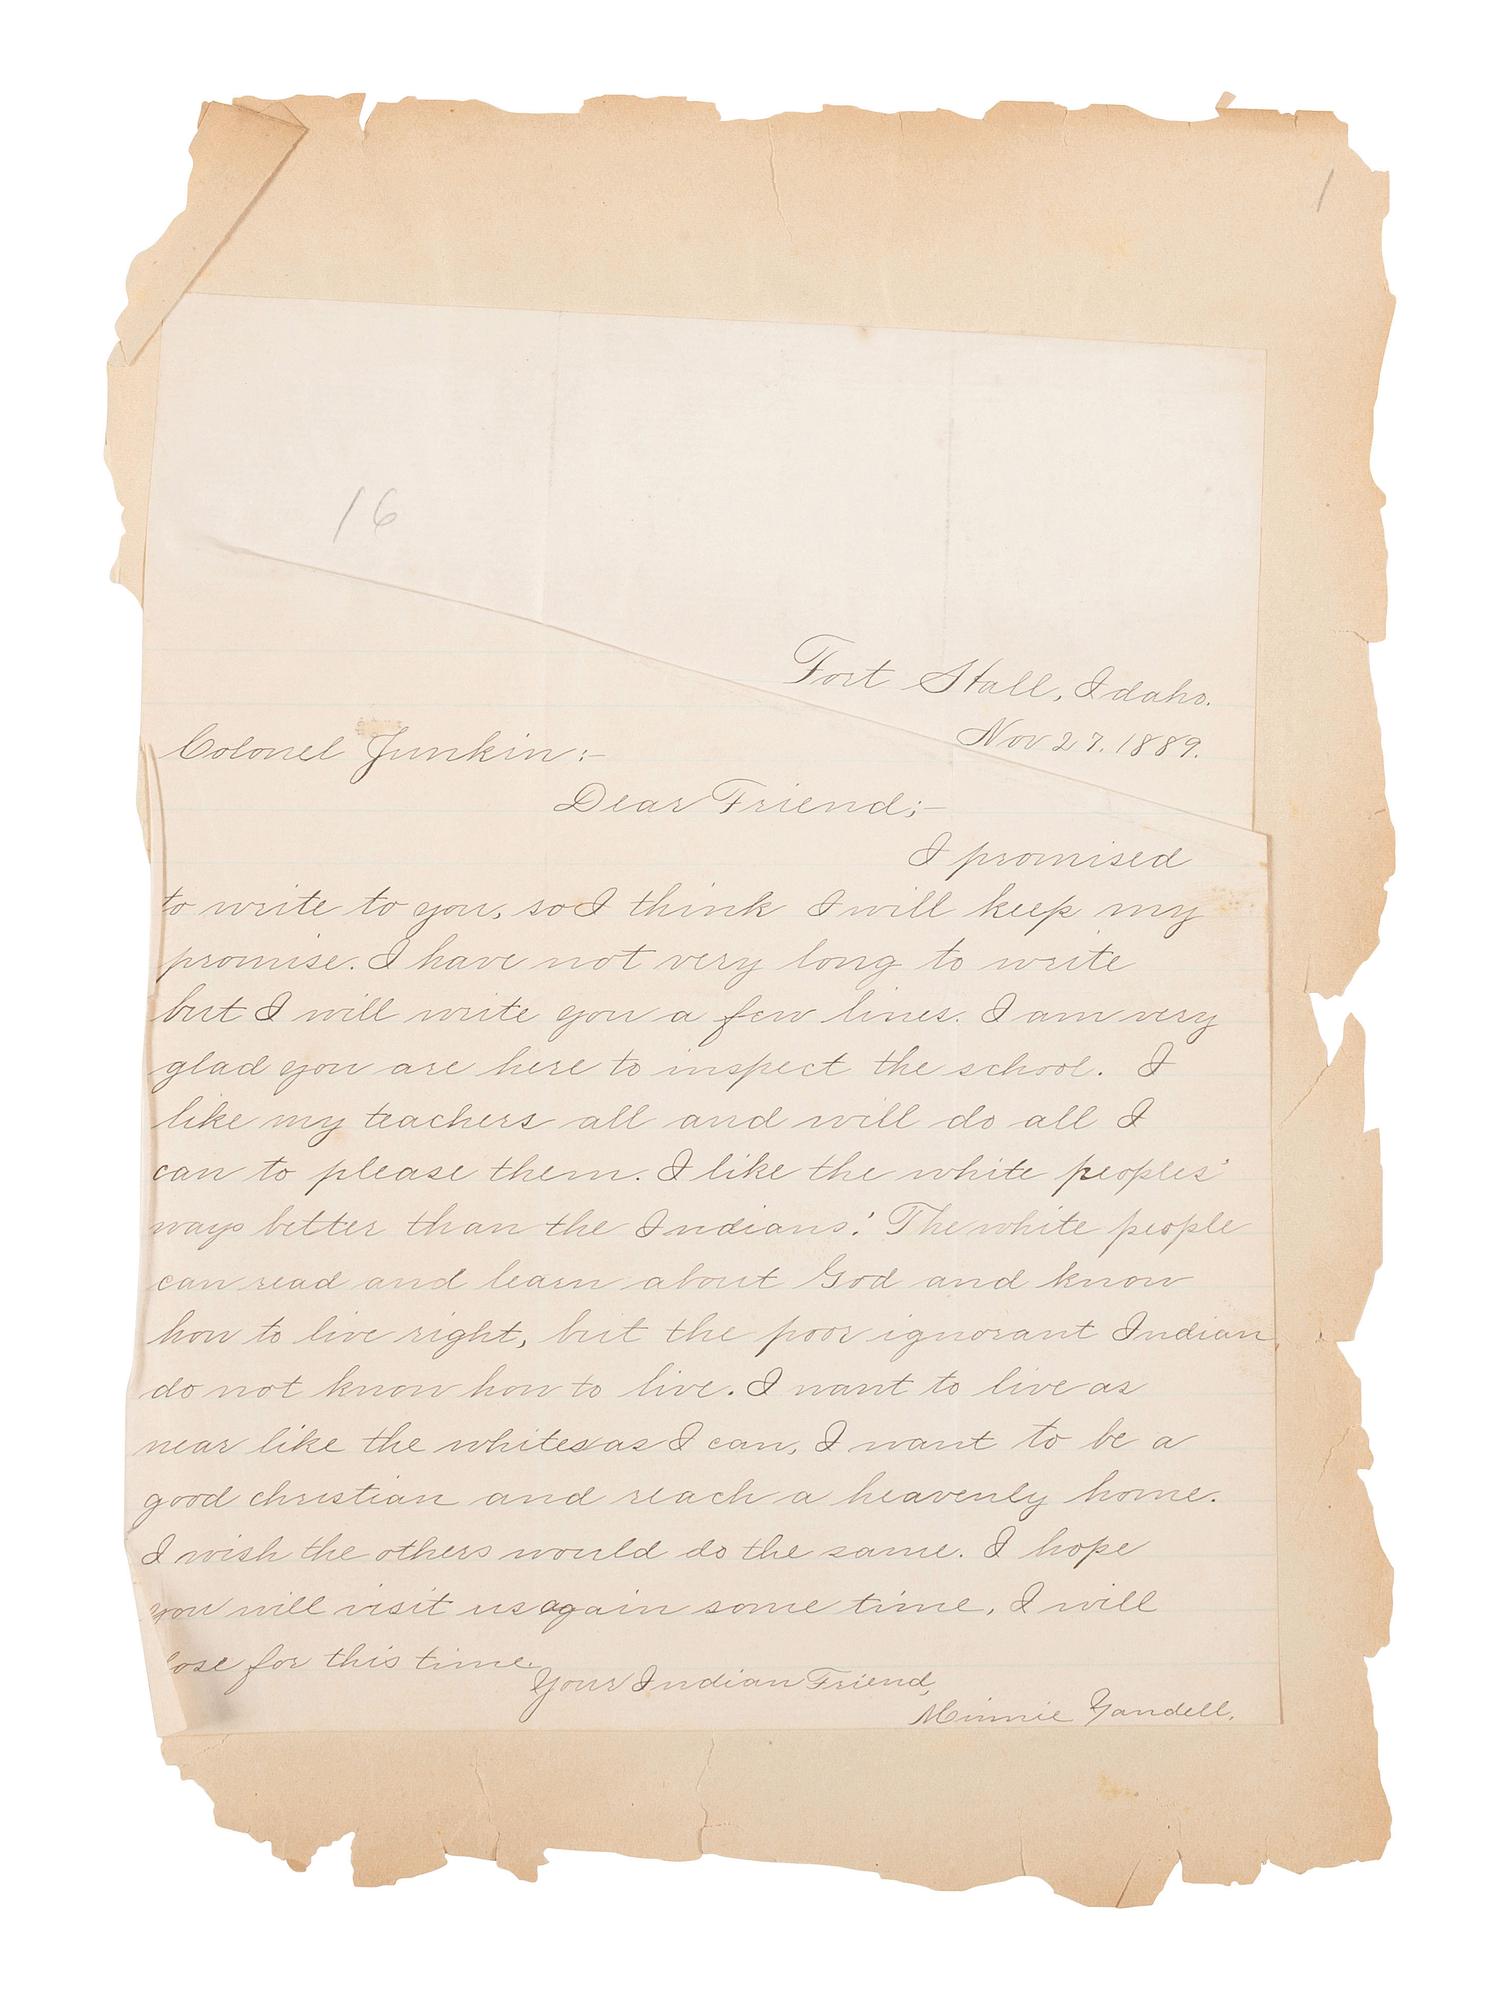 1
16
Fort Hall, Idaho.
Nov 27. 1889.
Colonel Junkin:-
Dear Friend;-
I promised
to write to you, so I think I will keep my
promise. I have not very long to write
but I will write you a few lines. I am very
glad you are here to inspect the school. I
like my teachers all and will do all I
can to please them. I like the white peoples'
ways better than the Indians'. The white people
can read and learn about God and know
how to live right, but the poor ignorant Indian
do not know how to live. I want to live as
near like the whites as I can, I want to be a
good christian and reach a heavenly home.
I wish the others would do the same. I hope
you will visit us again some time, I will
lose for this time.
Your Indian Friend,
Minnie Yandell.